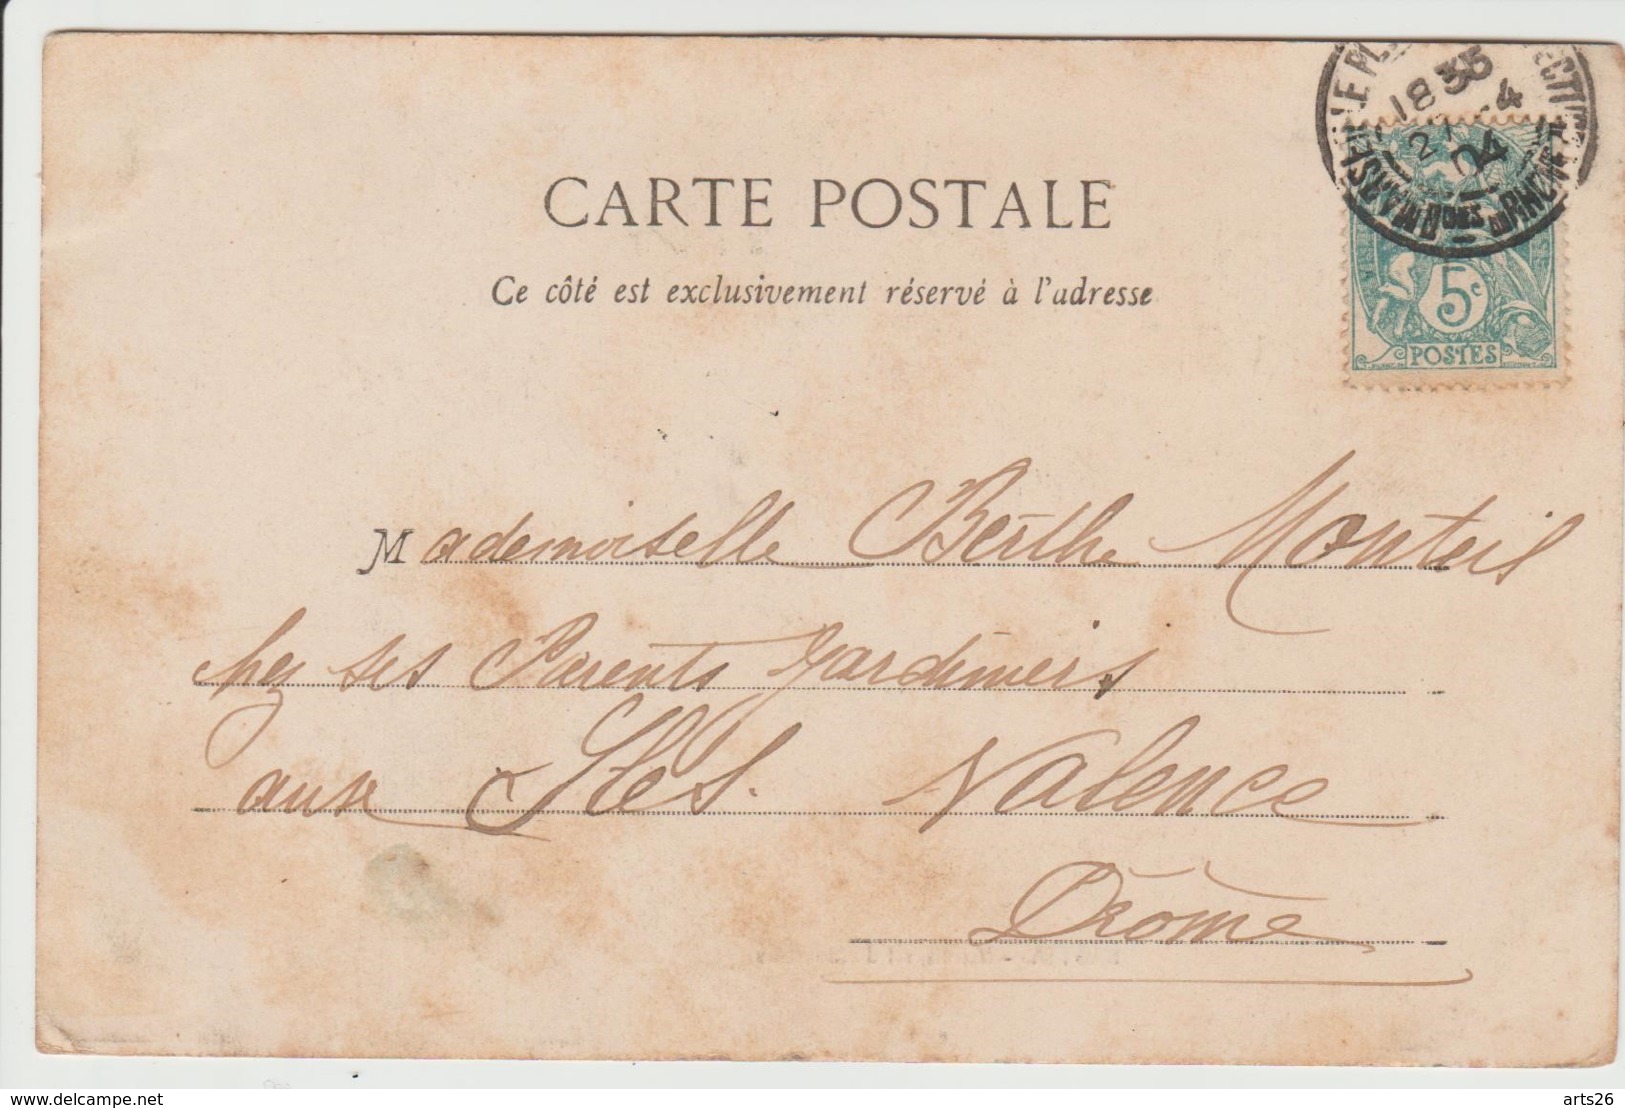 CARTE POSTALE
Ce côté est exclusivement réservé à l'adresse
18 35
04
5c
POSTES
Mademoiselle Berthe Monteil
chez ses Parents jardiniers
aux Iles. Valence
Drôme
delcampe.net
arts26